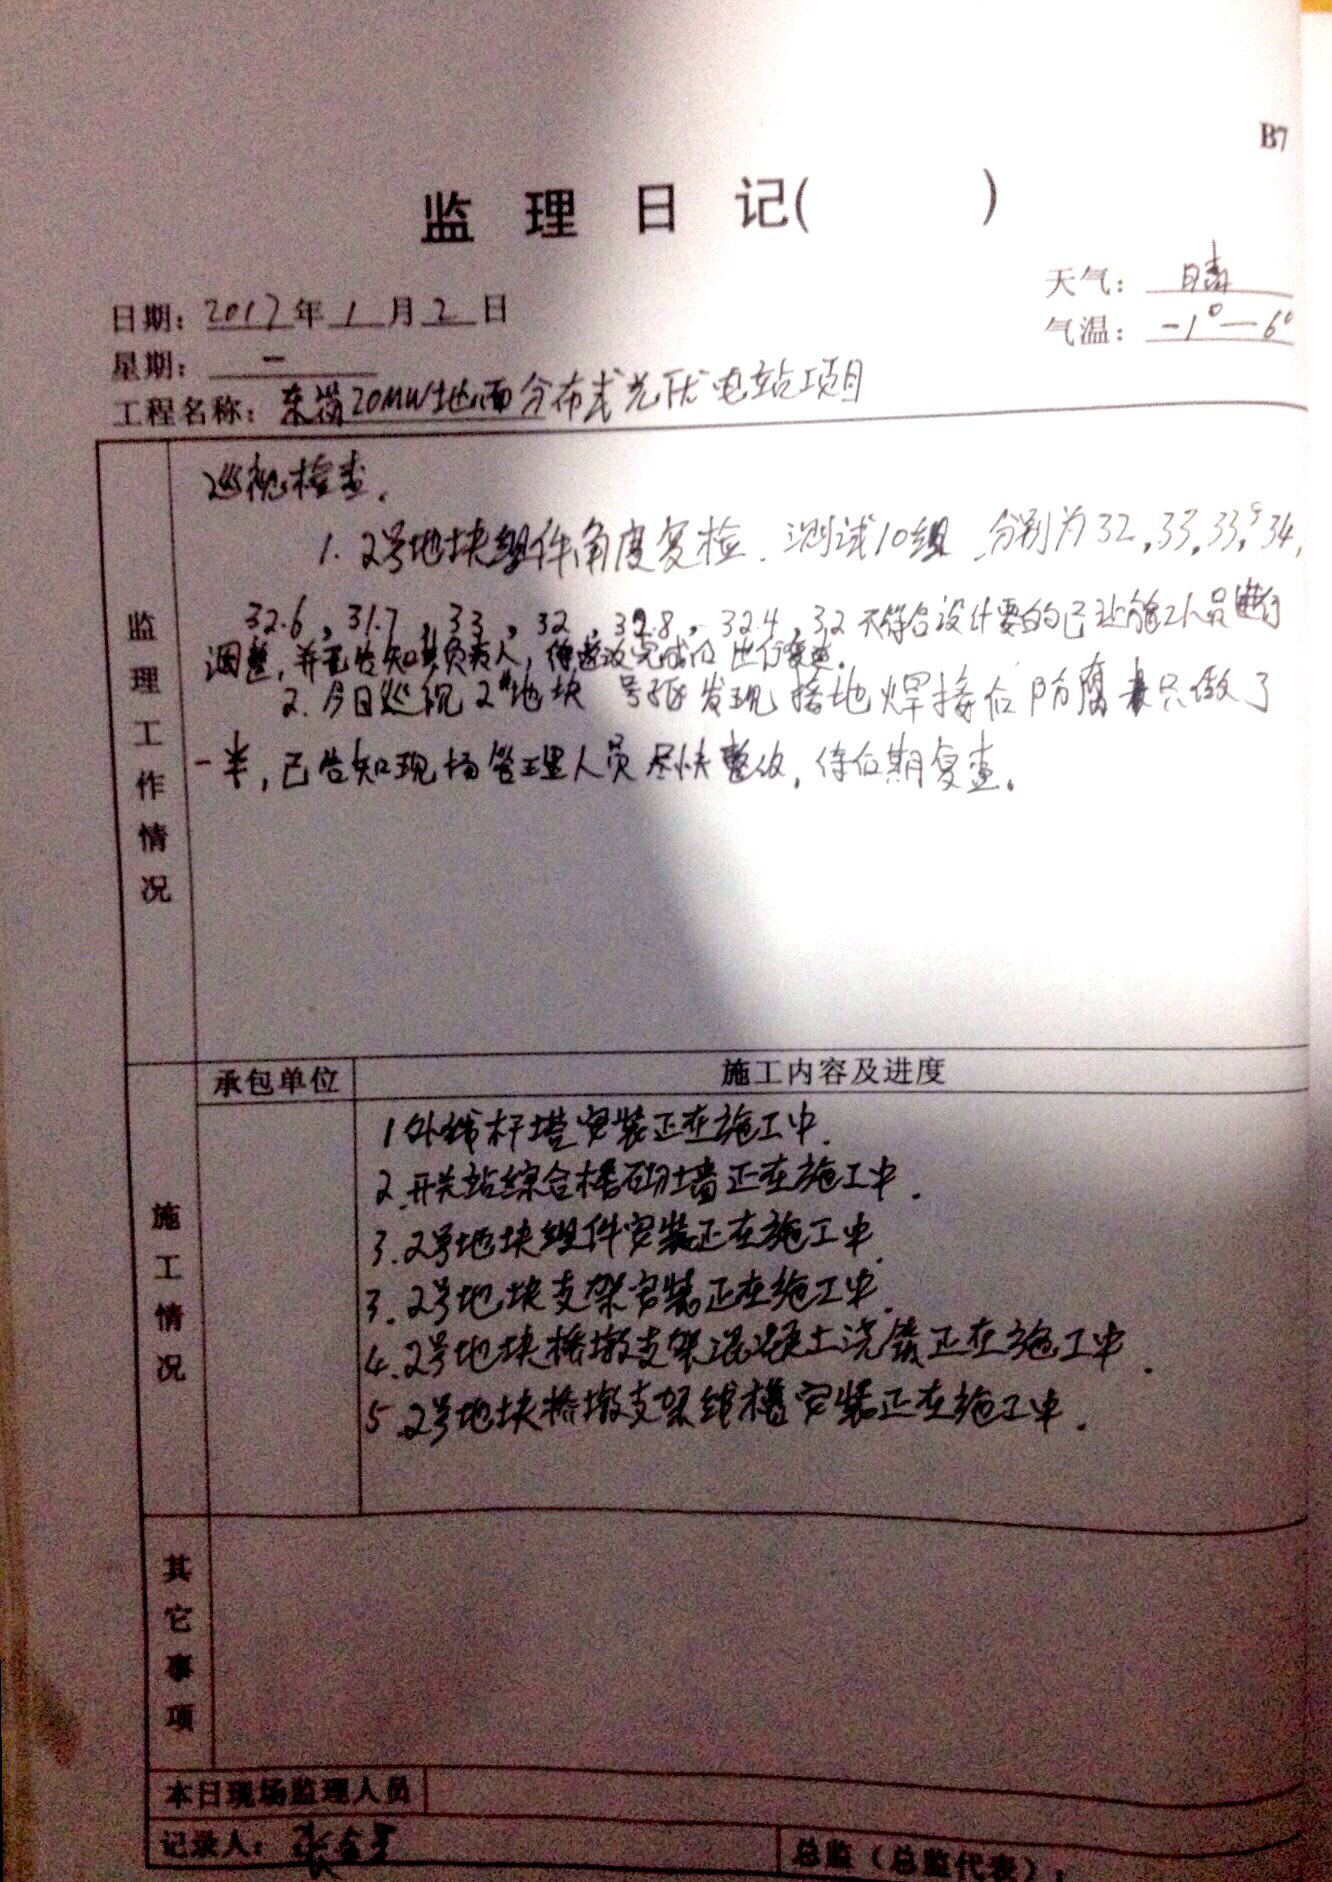 B7
监理日记( )
日期：2017年1月2日
天气：晴
星期：一
气温：-1°—6°
工程名称：东岗20MW地面分布式光伏电站项目
监理工作情况
巡视检查.
1. 2号地块组件角度复检、测试10组，分别为32，33，33.5，34，
32.6，31.7，33，32，32.8，32.4，32不符合设计要的已让施工人员进行
调整，并告知其负责人，待整改完成后进行复查。
2. 今日巡视2#地块 号班发现接地焊接后防腐只做了
一半，已告知现场管理人员尽快整改，待后期复查。
承包单位
施工内容及进度
施工情况
1外线杆塔安装正在施工中.
2.开关站综合楼砌墙正在施工中.
3.2号地块组件安装正在施工中.
3.2号地块支架安装正在施工中.
4.2号地块桥墩支架混凝土浇筑正在施工中.
5.2号地块桥墩支架线槽安装正在施工中.
其它事项
本日现场监理人员
记录人：
总监（总监代表）：